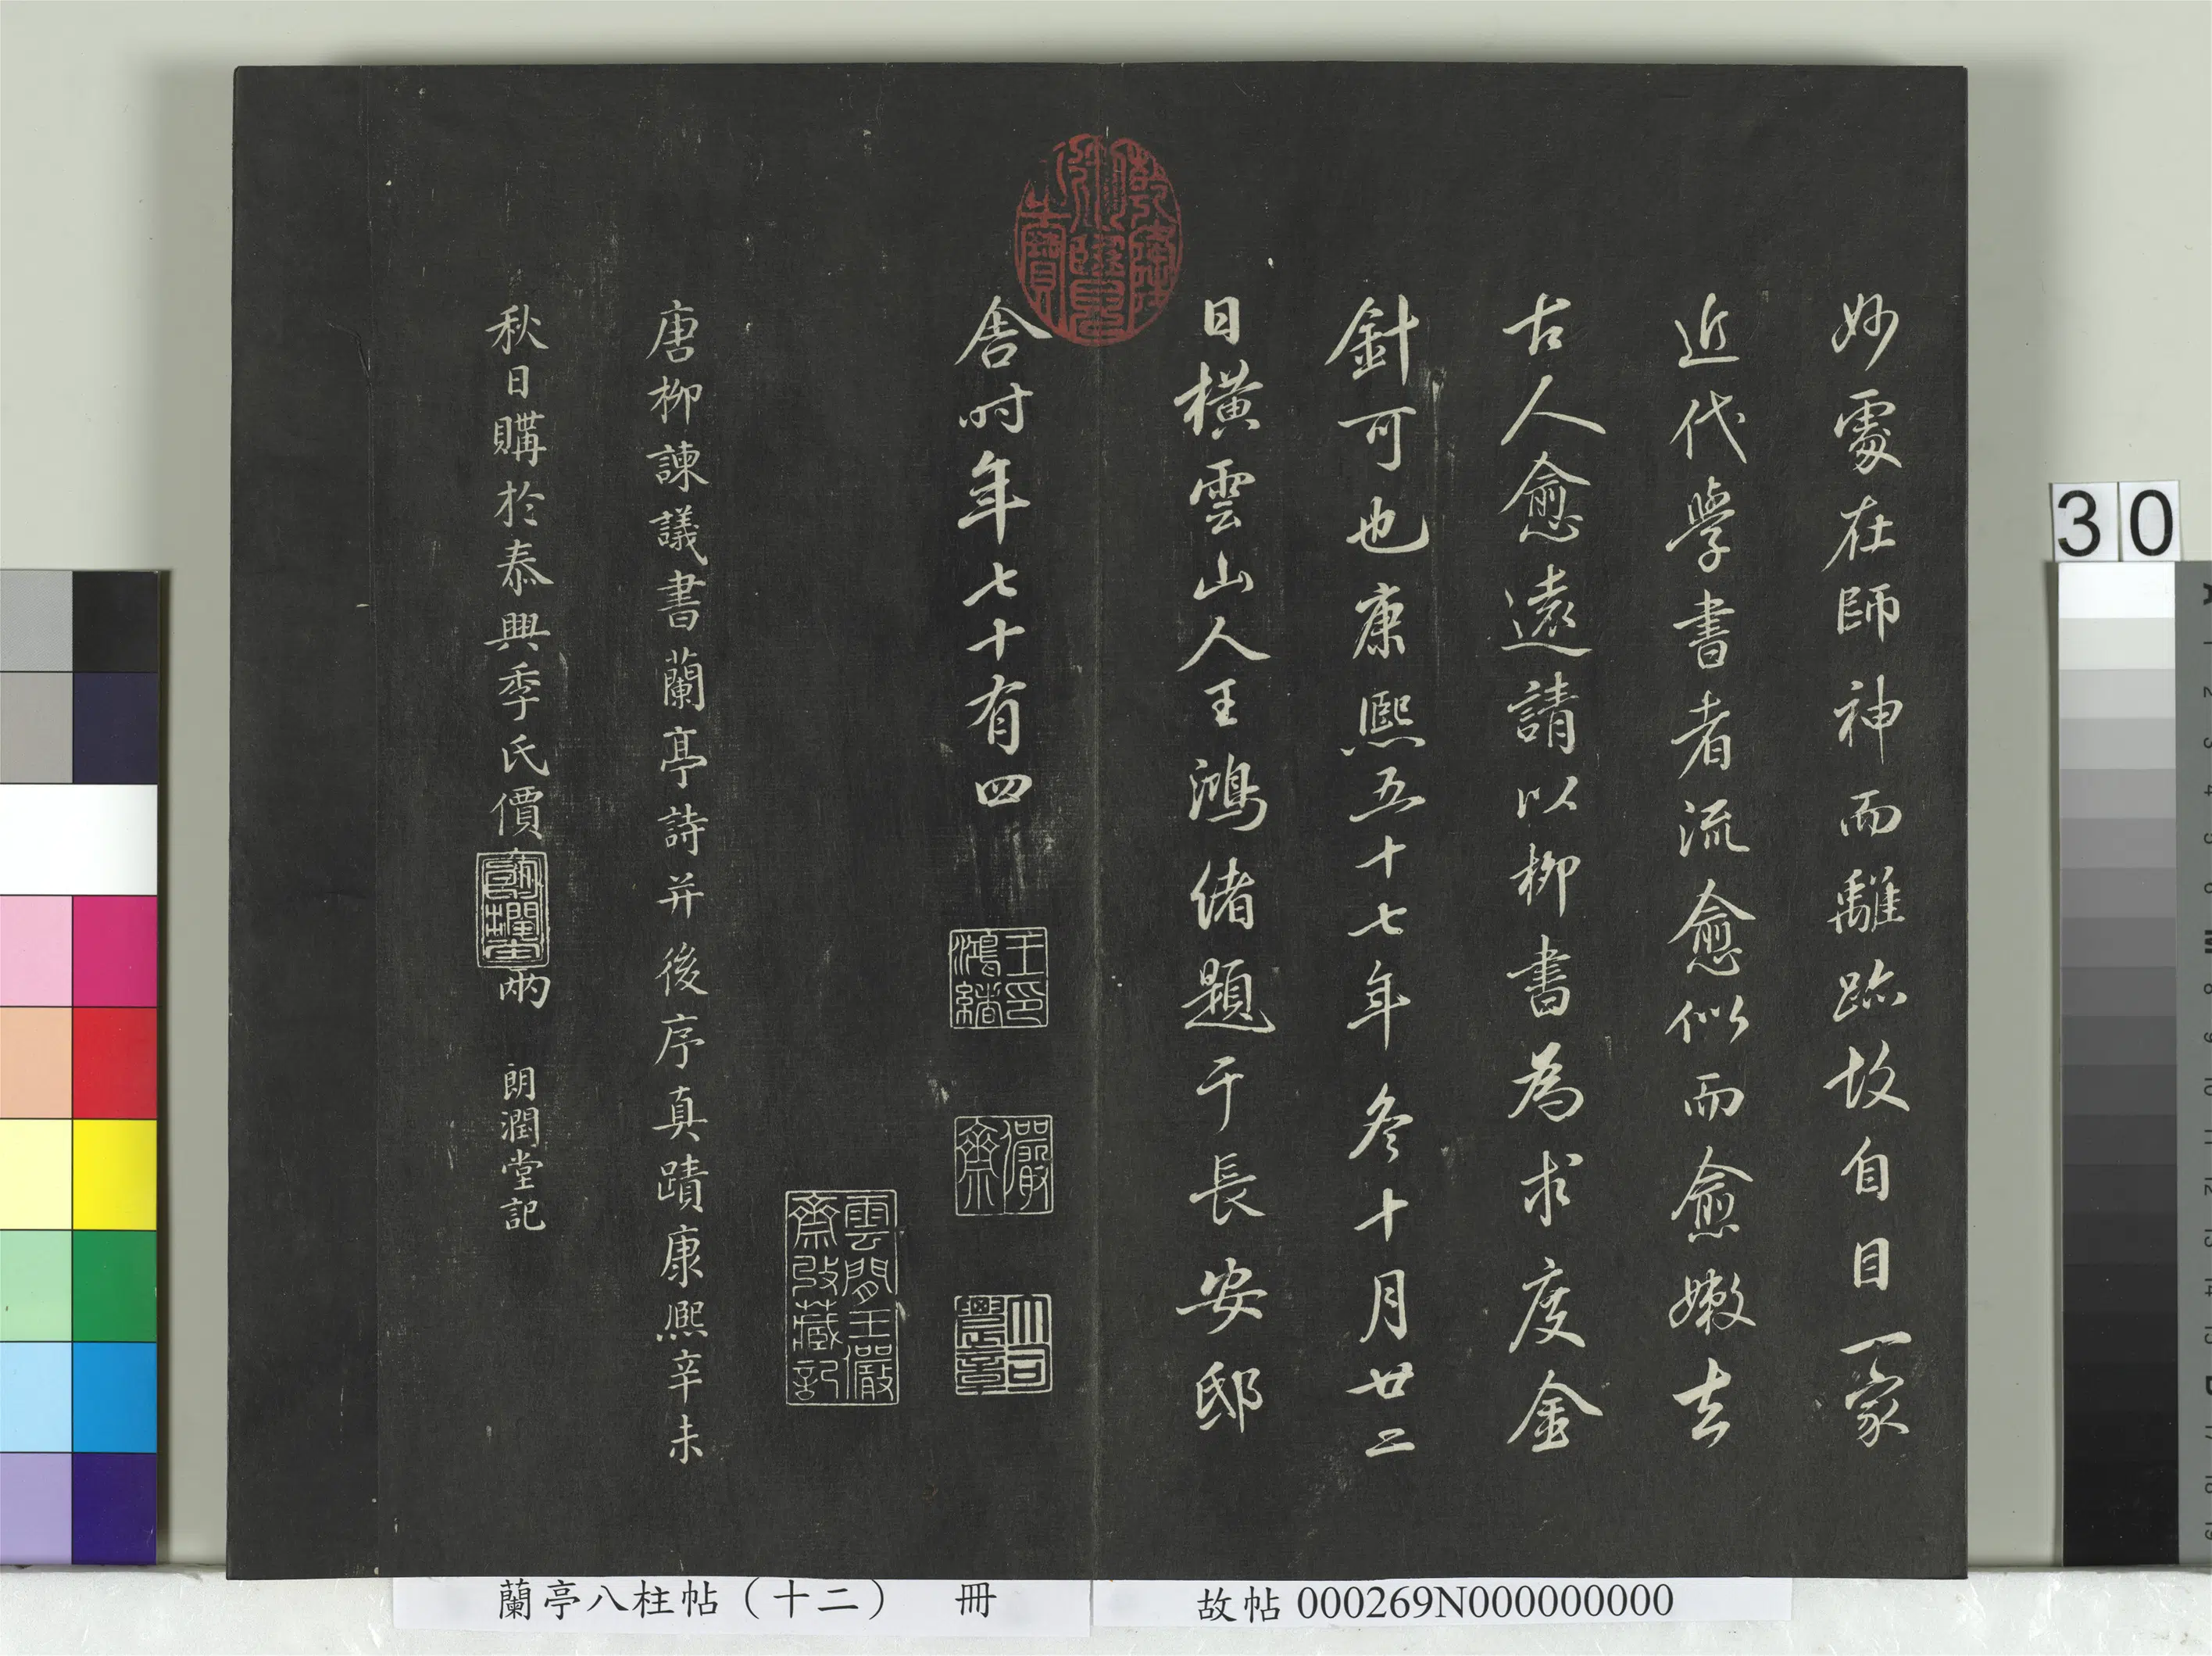 妙處在師神而離跡故自目一家
近代學書者流愈似而愈嫩去
古人愈遠請以柳書為求度金
針可也康熙五十七年冬十月廿二
日橫雲山人王鴻緒題于長安邸
舍時年七十有四
王鴻緒印
儼齋
大司農章
雲間王儼齋收藏記
唐柳諫議書蘭亭詩并後序真蹟康熙辛未
秋日購於泰興季氏價
兩
朗潤堂記
蘭亭八柱帖（十二） 冊
故帖000269N000000000
30